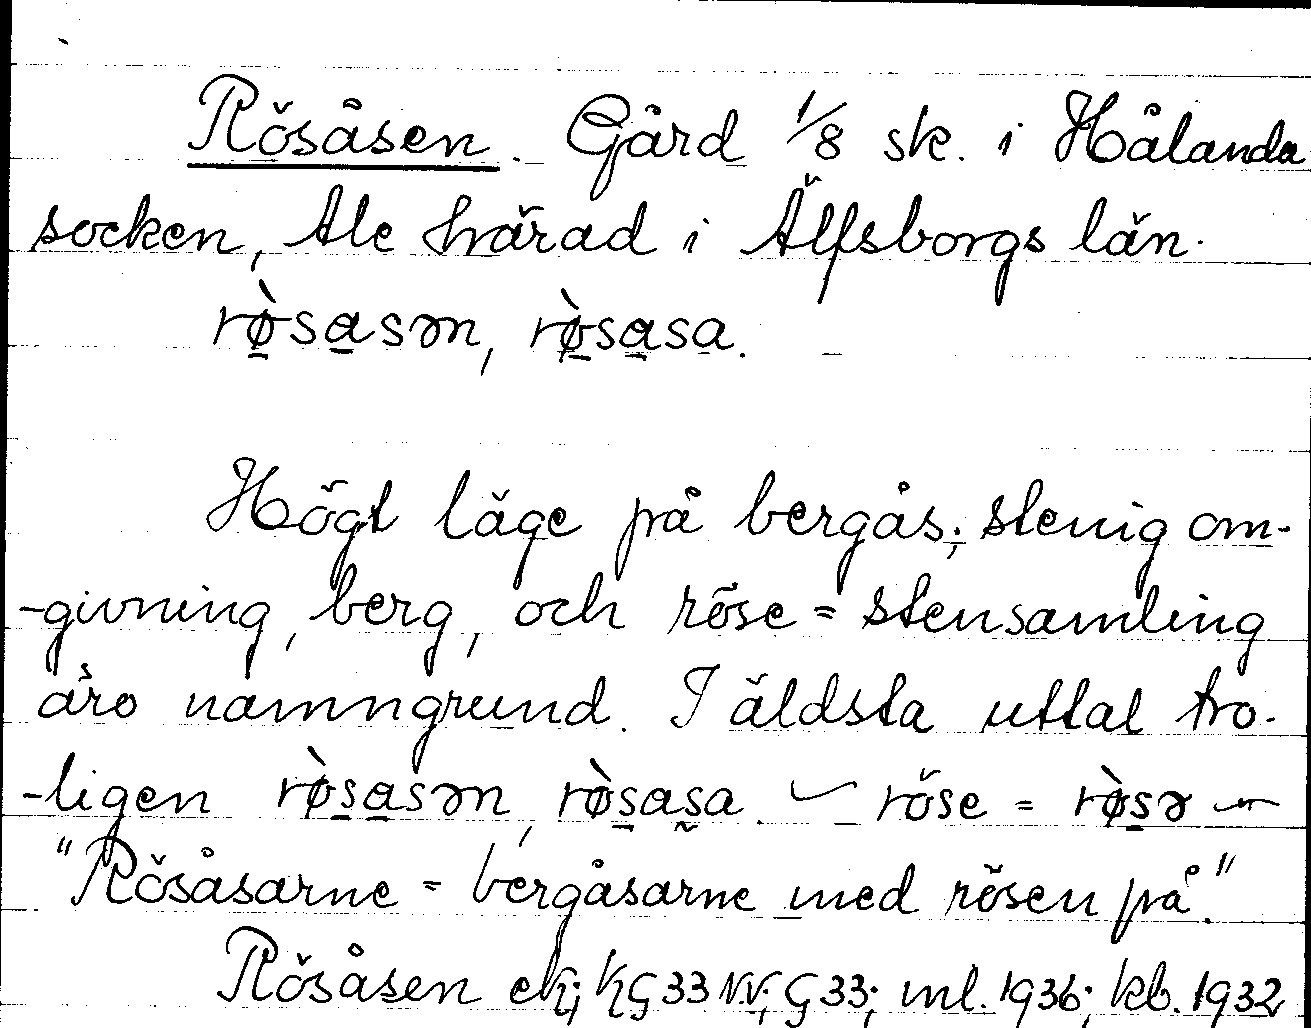 Rösåsen. Gård 1/8 sk. i Hålanda
socken, Ale härad i Älfsborgs län.
rø̀sasən, rø̀sasa.
Högt läge på bergås; stenig om-
-givning, berg, och röse = stensamling
äro namngrund. I äldsta uttal tro-
-ligen rø̀sasən, rø̀sasa. — röse = rø̀sə —
"Rösåsarne = bergåsarne med rösen på."
Rösåsen ek; KG 33 NV; G 33; ml. 1936; kb. 1932